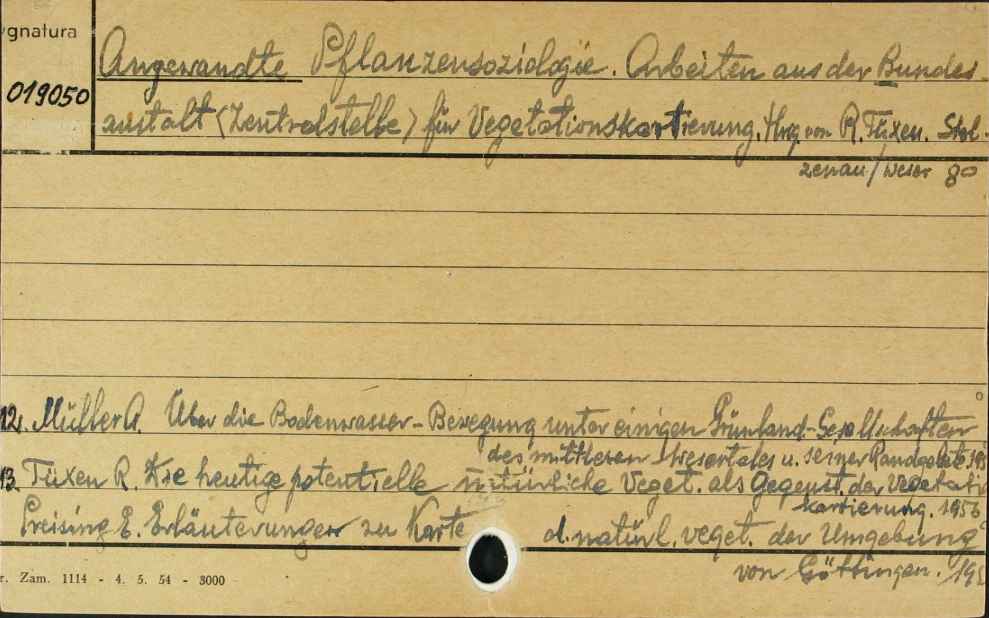 ygnatura
019050
Angewandte Pflanzensoziologie. Arbeiten aus der Bundes
anstalt (Zentralstelle) für Vegetationskartierung. Hrg. von R. Tüxen. Stol-
zenau / Weser 8o
12. Müller A. Über die Bodenwasser-Bewegung unter einigen Grünland-Gesellschaften
des mittleren Wesertales u. seiner Randgebiete. 195
13. Tüxen R. Die heutige potentielle natürliche Veget. als Gegenst. der Vegetatio
kartierung. 1956
Preising E. Erläuterungen zu Karte d. natürl. veget. der Umgebung
von Göttingen. /195
r. Zam. 1114 - 4. 5. 54 - 3000